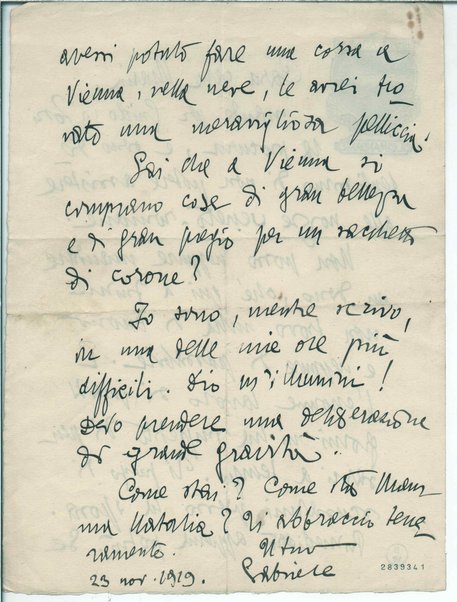 avessi potuto fare una corsa a
Vienna, nella neve, le avrei tro
vato una meravigliosa pelliccia!
Sai che a Vienna si
comprano cose di gran bellezza
e di gran pregio per un sacchetto
di corone?
Io sono, mentre scrivo,
in una delle mie ore più
difficili. Dio m'illumini!
Devo prendere una deliberazione
di grande gravità.
Come stai? Come sta Mam-
ma Natalia? Ti abbraccio tene
ramente.
Il tuo
23 nov. 1919. Gabriele
2839341